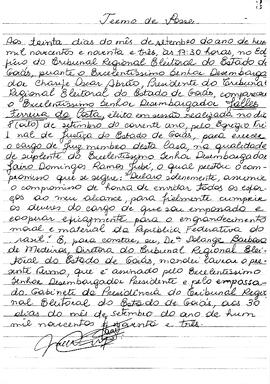 Termo de Posse
Aos trinta dias do mês de setembro do ano de hum
mil novecentos e noventa e três, às 17:30 horas, no Edi
fício do Tribunal Regional Eleitoral do Estado de
Goiás, perante o Excelentíssimo Senhor Desembarga
dor Charife Oscar Abrão, Presidente do Tribunal
Regional Eleitoral do Estado de Goiás, compareceu
o Excelentíssimo Senhor Desembargador
Ferreira da Costa, eleito em sessão realizada no dia
8 (oito) de setembro do corrente ano, pelo Egrégio Tribu
nal de Justiça do Estado de Goiás, para exercer
o cargo de Juiz membro desta Casa, na qualidade
de suplente do Excelentíssimo Senhor Desembargador
Jairo Domingos Ramos Jubé, o qual prestou o com
promisso que se segue: "Declaro solenemente, assumir
o compromisso de honra de envidar todos os esfor
ços ao meu alcance, para fielmente cumprir
os deveres do cargo de que sou empossado e
cooperar eficazmente para o engrandecimento
moral e material da República Federativa do
Brasil". E, para constar, eu, Solange Barbosa
de Medeiros, Diretora do Tribunal Regional Elei
toral do Estado de Goiás, mandei lavrar o presen
te termo, que é assinado pelo Excelentíssimo
Senhor Desembargador Presidente e pelo empossa
do. Gabinete da Presidência do Tribunal Regio
nal Eleitoral do Estado de Goiás, aos 30
dias do mês de setembro do ano de hum
mil novecentos e noventa e três.